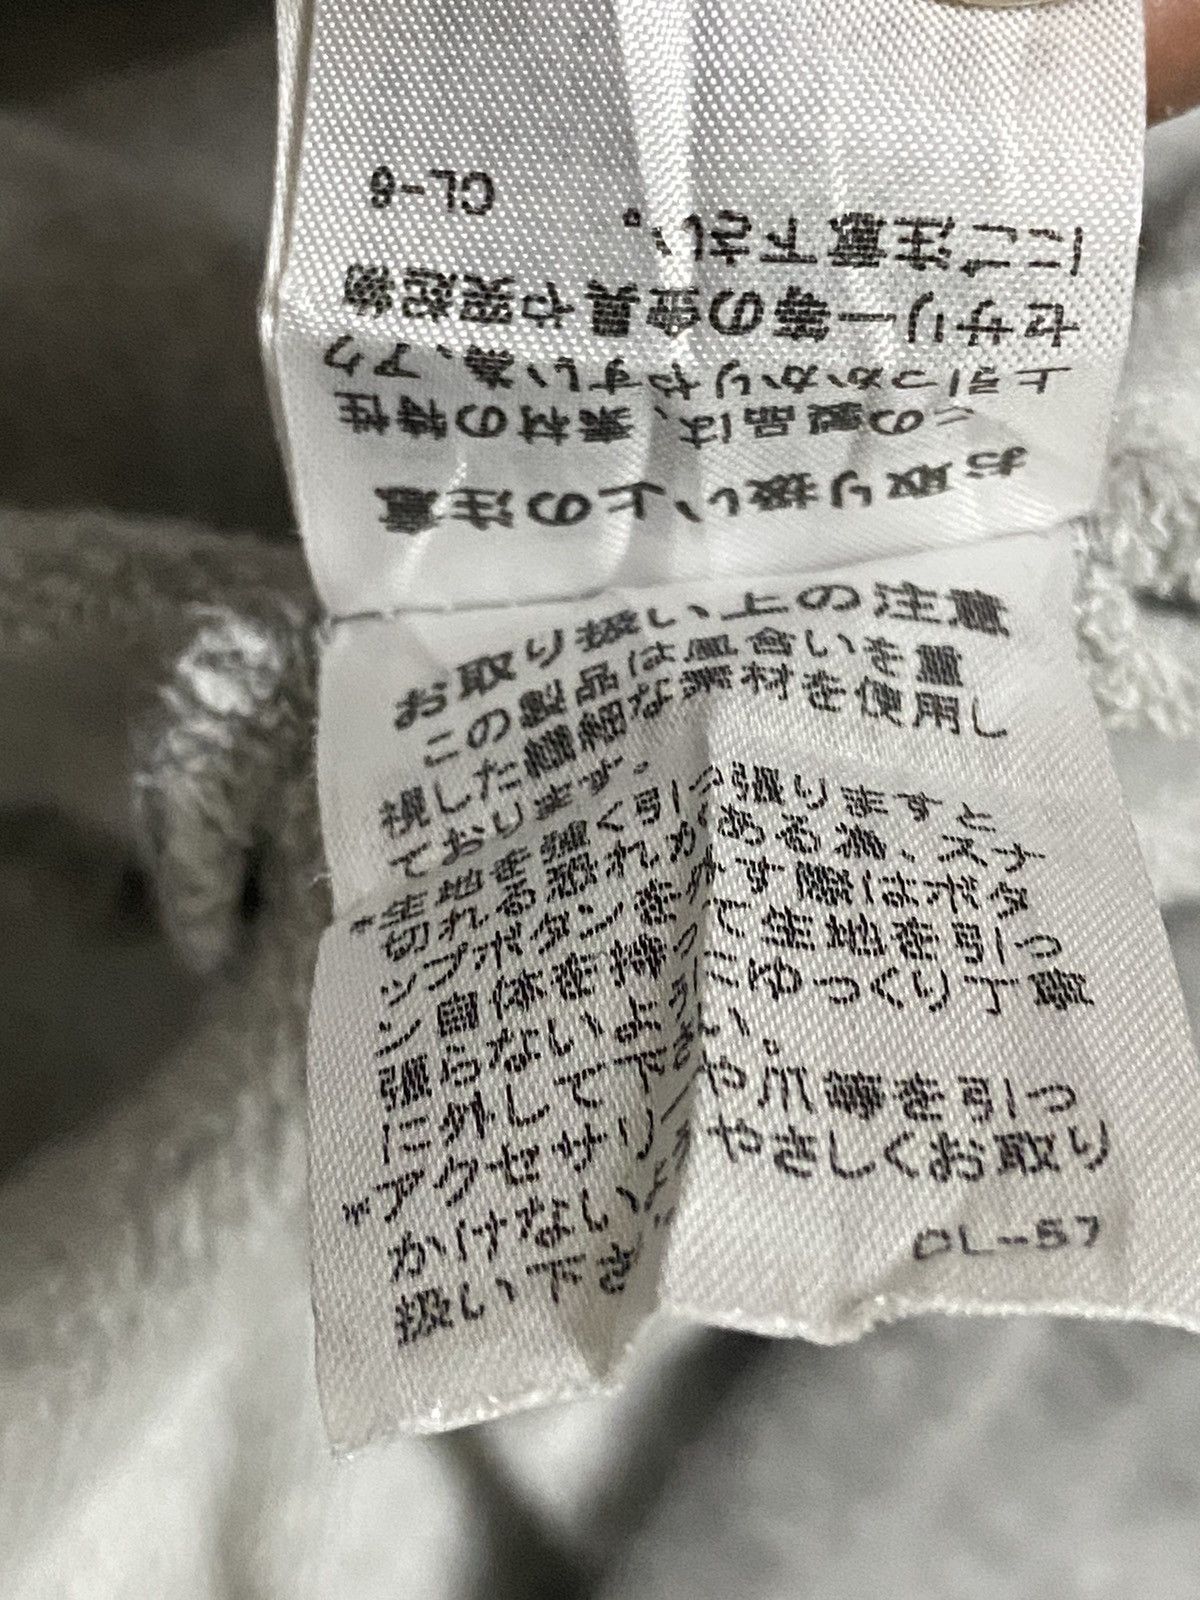 お取り扱い上の注意
この製品は、素材の特性
上引っかかりやすい為、アク
セサリー等の金具や突起物
にご注意下さい。
CL-6
お取り扱い上の注意
この製品は風合いを重
視した繊細な素材を使用し
ております。
*生地を強く引っ張りますと
切れる恐れがある為、スナ
ップボタンを外す際はボタ
ン自体を持って生地を引っ
張らないようにゆっくり丁寧
に外して下さい。
*アクセサリーや爪等を引っ
かけないようやさしくお取り
扱い下さ
CL-57